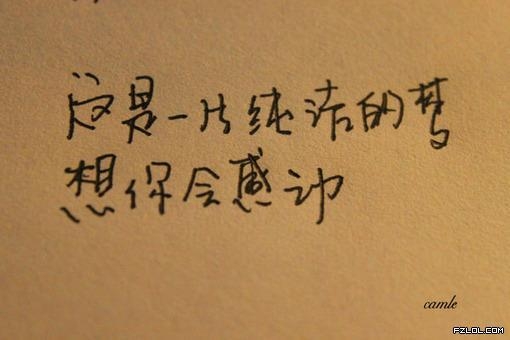 这是一片纯洁的梦
想你会感动
camle
FZLOL.COM